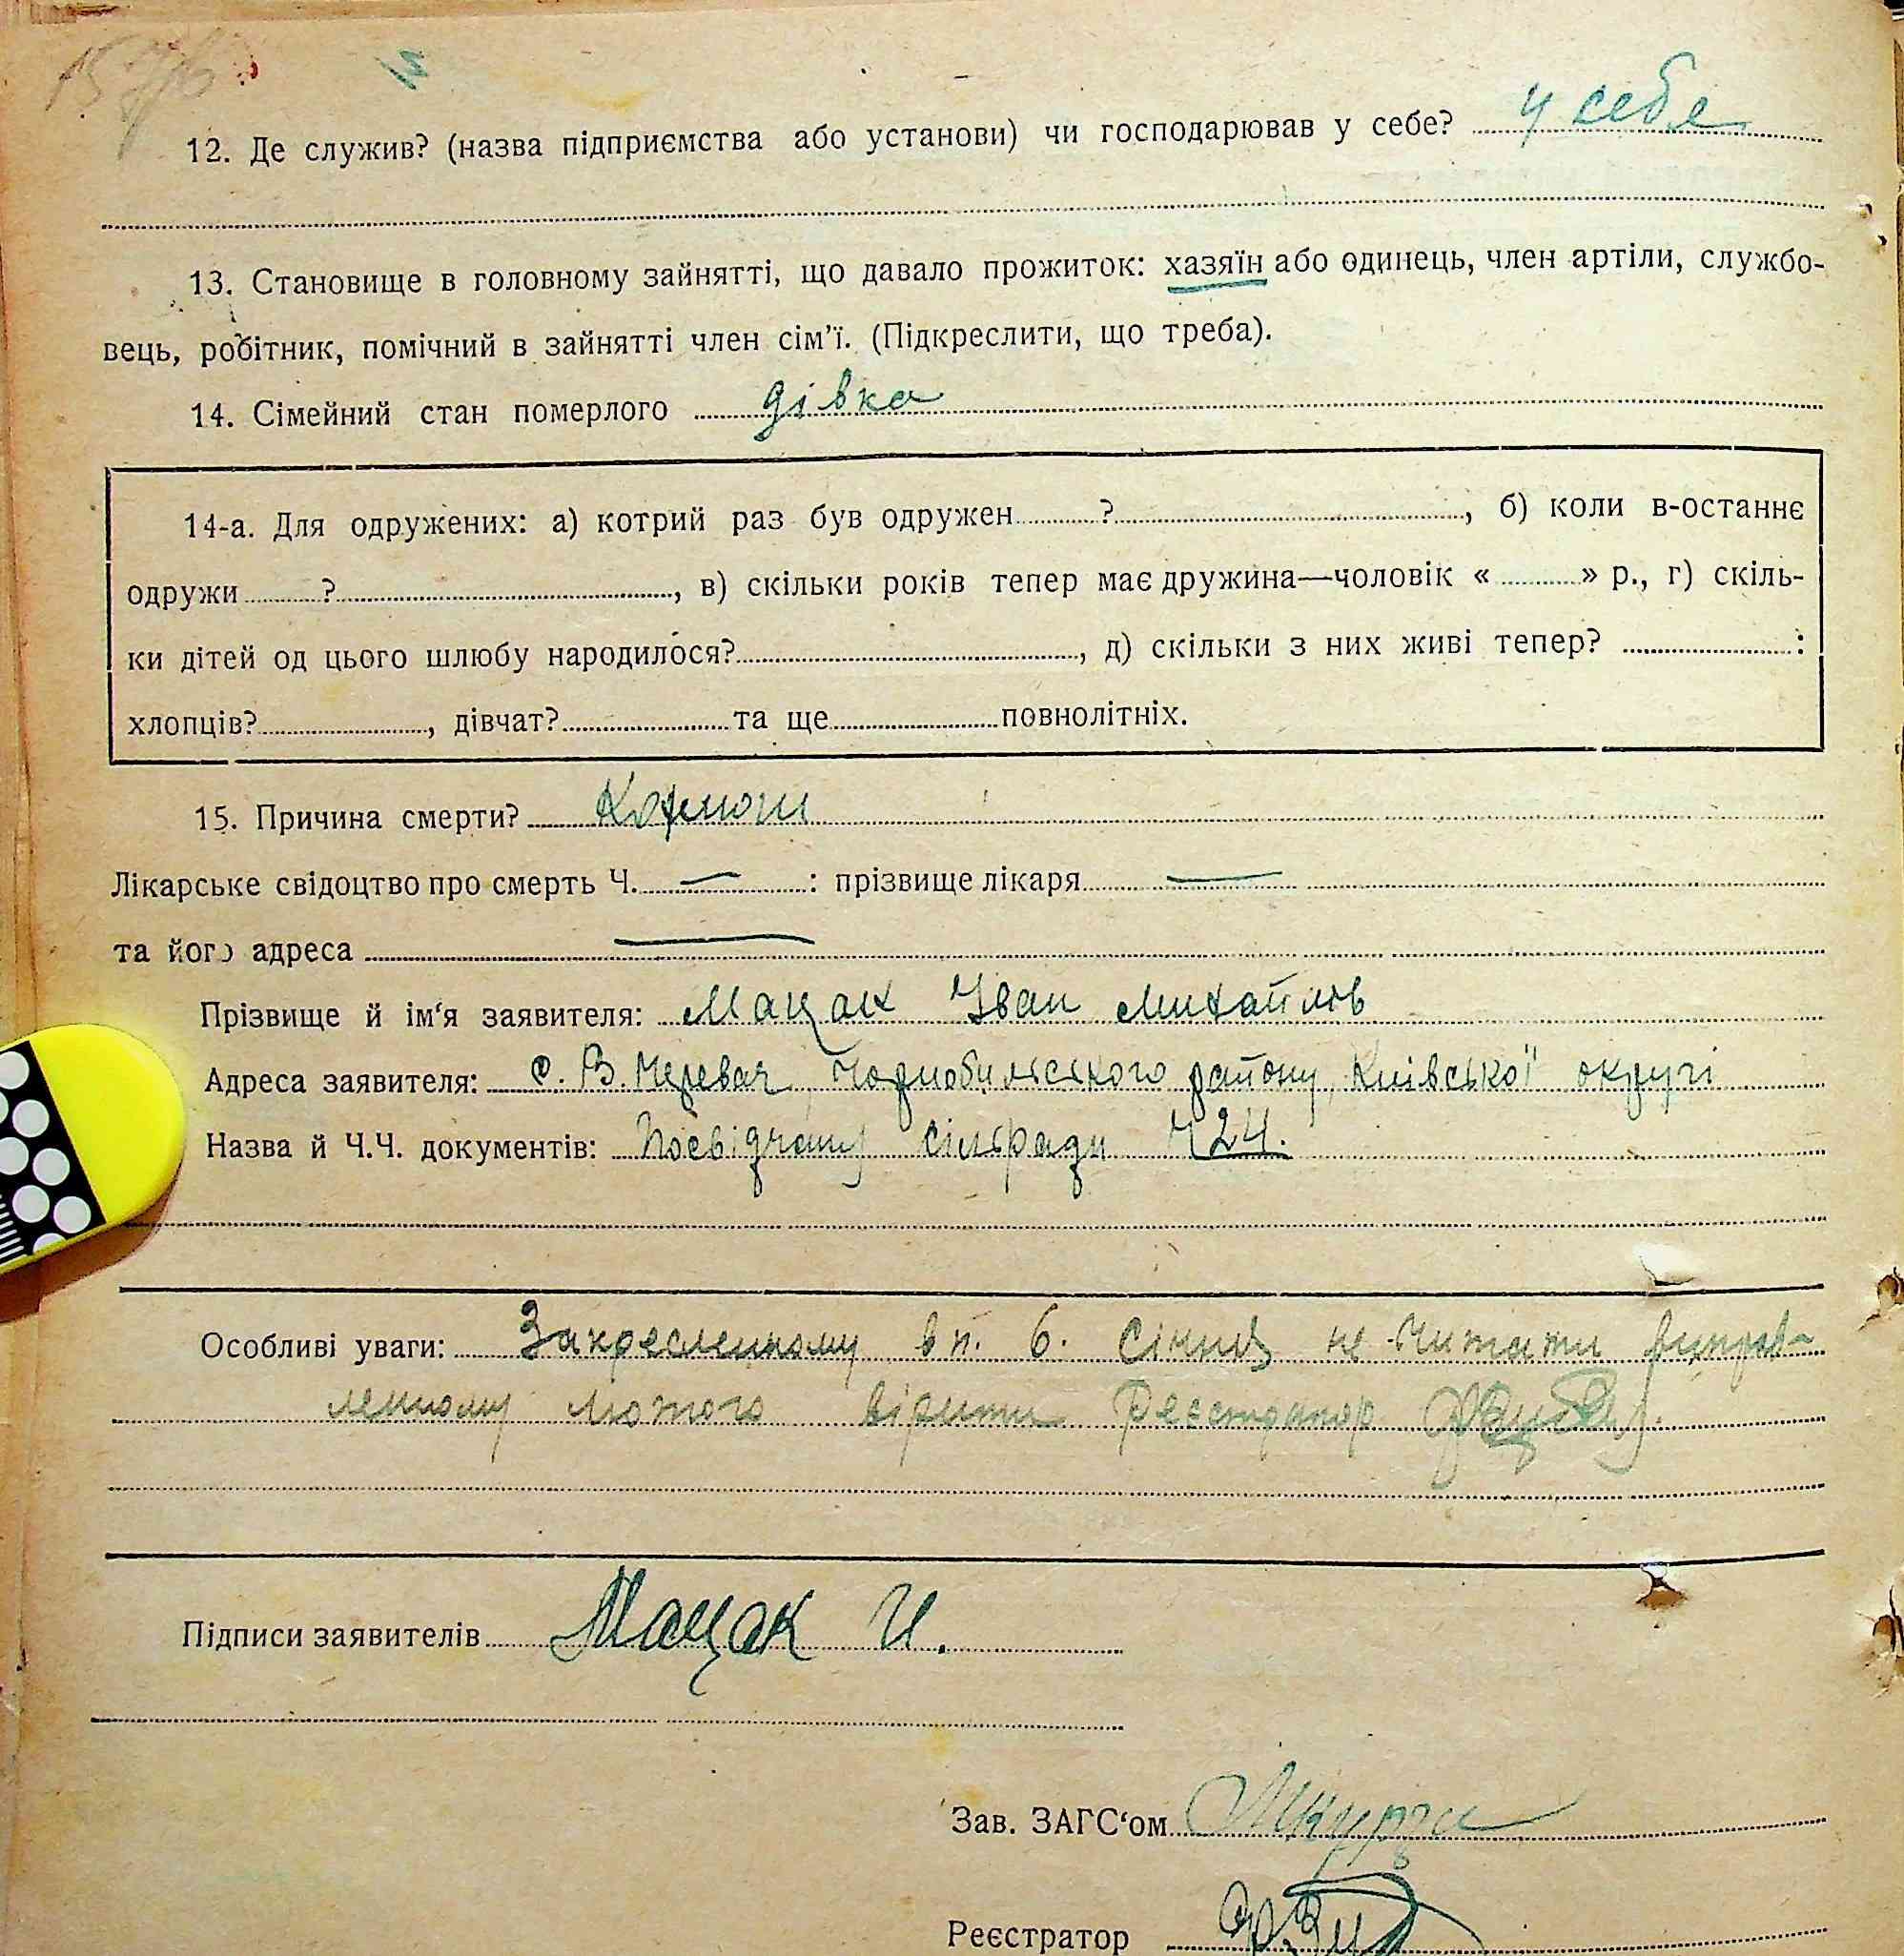 12. Де служив? (назва підприємства або установи) чи господарював у себе? у себе
13. Становище в головному зайнятті, що давало прожиток: хазяїн або одинець, член артіли, службо-
вець, робітник, помічний в зайнятті член сім'ї. (Підкреслити, що треба).
14. Сімейний стан померлого дівка
14-а. Для одружених: а) котрий раз був одружен ? , б) коли в-останнє
одружи ? , в) скільки років тепер має дружина—чоловік « » р., г) скіль-
ки дітей од цього шлюбу народилося? , д) скільки з них живі тепер? :
хлопців? , дівчат? та ще повнолітніх.
15. Причина смерти?
Лікарське свідоцтво про смерть Ч. — : прізвище лікаря —
та його адреса —
Прізвище й ім'я заявителя: Мацак Іван Михайлів
Адреса заявителя: с. В. Черевач Чорнобильського району, Київської округі
Назва й Ч.Ч. документів: Посвідчання сільради Ч 24.
Особливі уваги: Закресленному в п. 6. Січня не читати виправ-
ленному лютого вірити Реєстратор
Підписи заявителів Мацак И.
Зав. ЗАГС'ом
Реєстратор